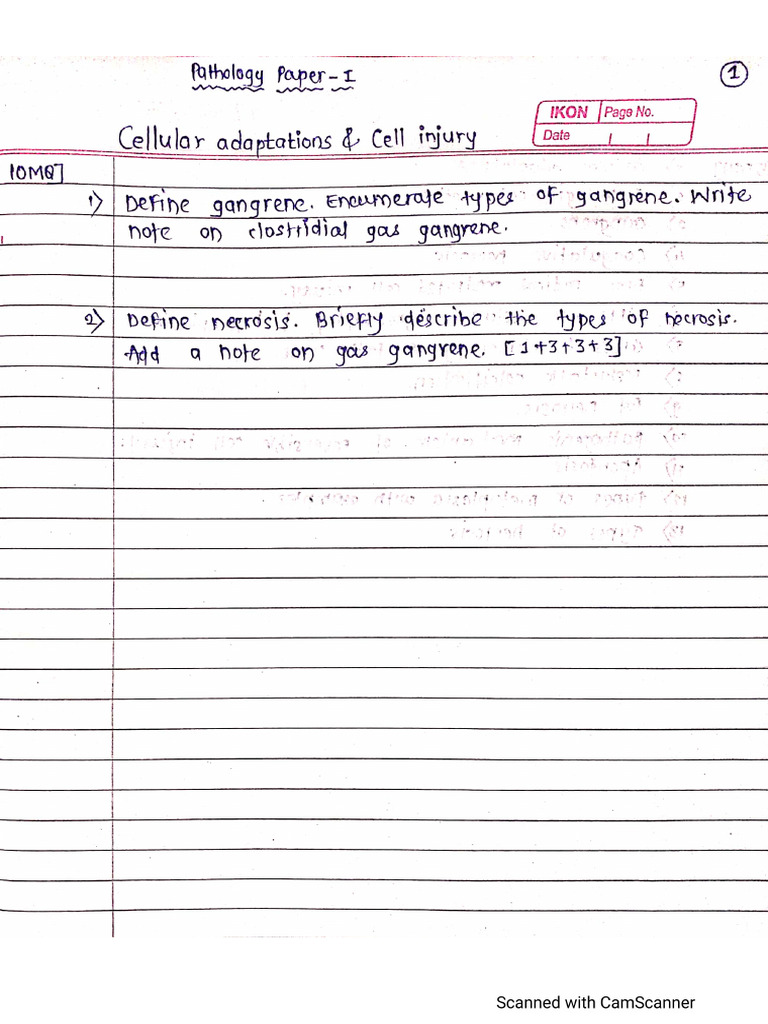 Pathology Paper-I
1
IKON Page No.
Date
Cellular adaptations & Cell injury
10MQ]
1) Define gangrene. Encumerate types of gangrene. Write
note on clostridial gas gangrene.
2) Define necrosis. Briefly describe the types of necrosis.
Add a note on gas gangrene. [1+3+3+3]
Scanned with CamScanner